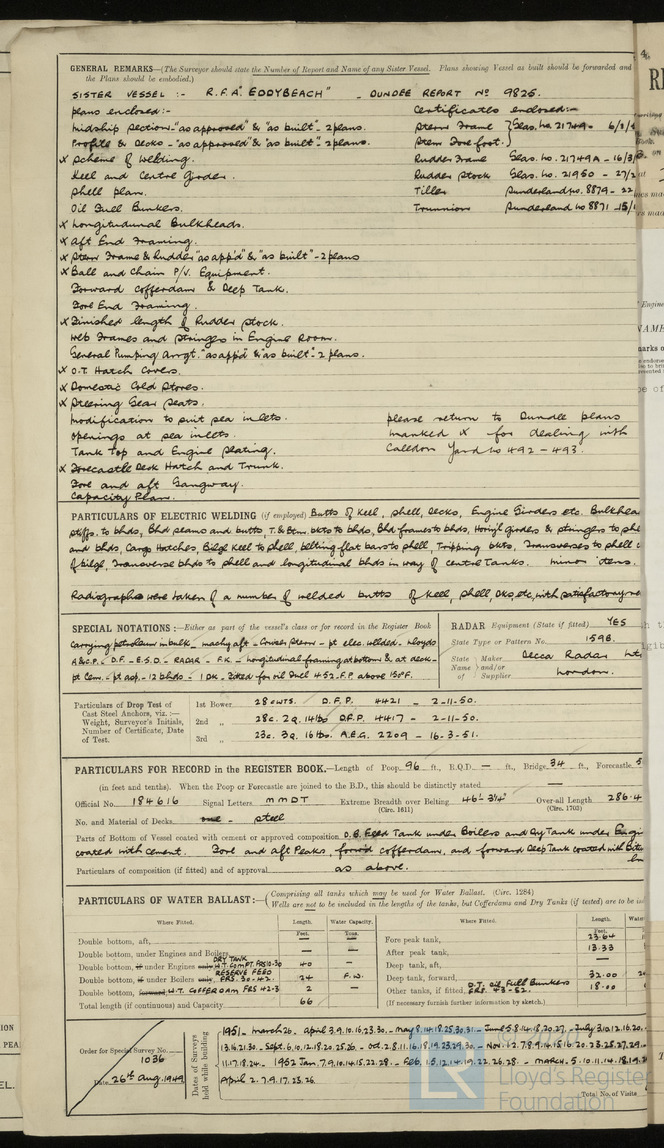 GENERAL REMARKS—(The Surveyor should state the Number of Report and Name of any Sister Vessel. Plans showing Vessel as built should be forwarded and
the Plans should be embodied.)
SISTER VESSEL :- R.F.A. "EDDYBEACH" - DUNDEE REPORT No 9826.
plans enclosed:- Certificates enclosed:-
Midship Section - "as approved" & "as built" - 2 plans. Stern Frame } Glas. no. 21749 -
Profile & Decks - "as approved" & "as built" - 2 plans. Stem Fore foot. }
x Scheme of Welding. Rudder Frame Glas. no. 21749A - 16/3/
Keel and Centre Girder. Rudder Stock Glas. no. 21950 - 27/2
Shell plan. Tiller Sunderland no. 8879 - 22
Oil Fuel Bunkers. Trunnion Sunderland no 8871 - 15/
x Longitudinal Bulkheads.
x Aft End Framing.
x Stern Frame & Rudder "as app'd" & "as built" - 2 plans
x Ball and Chain P/V. Equipment.
Forward Cofferdam & Deep Tank.
Fore End Framing.
x Finished length of Rudder Stock.
Web Frames and Stringers in Engine Room.
General Pumping Arrgt. "as app'd & "as built" - 2 plans.
x O.T. Hatch Covers.
x Domestic Cold Stores.
x Steering Gear Seats.
Modification to suit sea inlets. please return to Dundee plans
Openings at sea inlets. marked x for dealing with
Tank Top and Engine Seating. Caledon Yard no 492 - 493.
x Forecastle Deck Hatch and Trunk.
Fore and aft Gangway.
Capacity Plan.
PARTICULARS OF ELECTRIC WELDING (if employed) Butts of Keel, Shell, Decks, Engine Girders etc. Bulkhea
stiffs. to bhds, Bhd seams and butts, T. & Btm. bkts to bhds, Bhd frames to bhds, Horizl girders & stringers to
and bhds, Cargo Hatches, Bilge Keel to shell, belting flat bars to shell, Tripping bkts, Transverses to shell
of bilge, Transverse bhds to shell and longitudinal bhds in way of centre Tanks. Minor items.
Radiographs were taken of a number of welded butts of keel, shell, Dks, etc, with satisfactory
SPECIAL NOTATIONS:—Either as part of the vessel's class or for record in the Register Book
Carrying petroleum in bulk - machy aft - Cruiser Stern - pt elec. welded - Lloyds
A & C.P. - D.F. - E.S.D. - RADAR - F.K. - longitudinal framing at bottom & at deck -
pt Cem. - pt asp. - 12 bhds - 1 DK - Fitted for oil fuel 4.52. F.P. above 150°F.
RADAR Equipment (State if fitted) YES
State Type or Pattern No. 159B.
State Name of { Maker and/or Supplier Decca Radar
London.
Particulars of Drop Test of Cast Steel Anchors, viz.:—Weight, Surveyor's Initials, Number of Certificate, Date of Test.
1st Bower 28 cwts. D.F.P. 4421 - 2-11-50.
2nd " 28c. 2q. 14lbs D.F.P. 4417 - 2-11-50.
3rd " 23c. 3q. 16lbs. A.E.G. 2209 - 16-3-51.
PARTICULARS FOR RECORD in the REGISTER BOOK.—Length of Poop 96 ft., R.Q.D. — ft., Bridge 34 ft., Forecastle
(in feet and tenths). When the Poop or Forecastle are joined to the B.D., this should be distinctly stated —
Official No. 184616 Signal Letters MMDT Extreme Breadth over Belting 46'-3¾" (Circ. 1611) Over-all Length 286.4 (Circ. 1703)
No. and Material of Decks one - Steel
Parts of Bottom of Vessel coated with cement or approved composition O.B. Feed Tank under Boilers and Dry Tank under Engi
coated with cement. Fore and aft Peaks, forw'd cofferdam, and forward Deep Tank coated with Bit
Particulars of composition (if fitted) and of approval as above.
PARTICULARS OF WATER BALLAST:—( Comprising all tanks which may be used for Water Ballast. (Circ. 1284)
Wells are not to be included in the lengths of the tanks, but Cofferdams and Dry Tanks (if tested) are to be
Where Fitted. Length. Feet. Water Capacity. Tons. Where Fitted. Length. Feet.
Double bottom, aft, — —
Double bottom, under Engines and Boilers — —
Double bottom, if under Engines only, DRY TANK W.T. COMPT. FRS 10-30 40 —
Double bottom, if under Boilers only, RESERVE FEED FRS. 30-42. 24 F.W.
Double bottom, forward, W.T. COFFERDAM FRS 42-3 2 —
Total length (if continuous) and Capacity 66
Fore peak tank, 23.64
After peak tank, 13.33
Deep tank, aft, —
Deep tank, forward, 32.00
Other tanks, if fitted, O.T. Oil Fuel Bunkers FRS. 43-52. 18.00
(If necessary furnish further information by sketch.)
Order for Special Survey No. 1036
Date 26th Aug. 1949
Dates of Surveys held while building
1951 - March 26. April 3.9.10.16.23.30. - May 8.14.18.25.30.31. - June 5.8.14.18.20.27. - July 3.10.12.16.20.
13.16.21.30. - Sept. 6.10.12.18.20.25.26. - Oct. 2.8.11.16.18.19.23.29.30. - Nov. 1.2.7.8.9.14.15.16.20.23.25.27.29.
11.17.18.24. - 1952 Jan. 7.9.10.14.15.22.28. - Feb. 1.5.12.14.19.22.26.28. - March. 5.10.11.14.18.19.
April 2.7.9.17.23.26.
Total No. of Visits
LR Lloyd's Register
Foundation